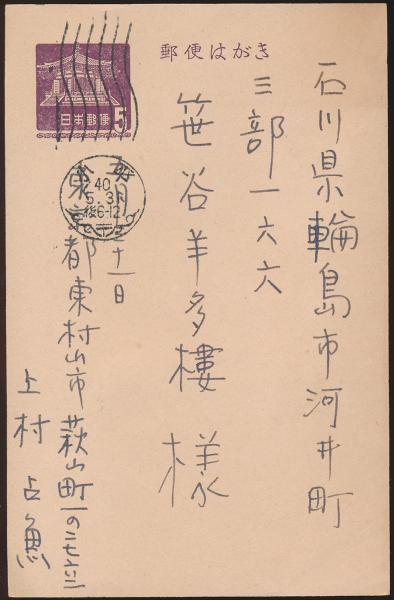 郵便はがき
日本郵便
5
石川県輪島市河井町
三部一六六
笹谷羊多樓様
40
5.31
後6-12
五月三十一日
東京都東村山市萩山町一の二七六三
上村占魚